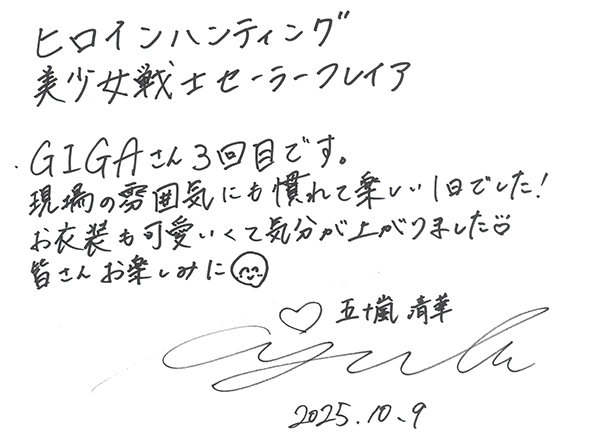 ヒロインハンティング
美少女戦士セーラーフレイア
GIGAさん3回目です。
現場の雰囲気にも慣れて楽しい1日でした！
お衣装も可愛いくて気分が上がりました
皆さんお楽しみに
五十嵐 清華
2025.10.9